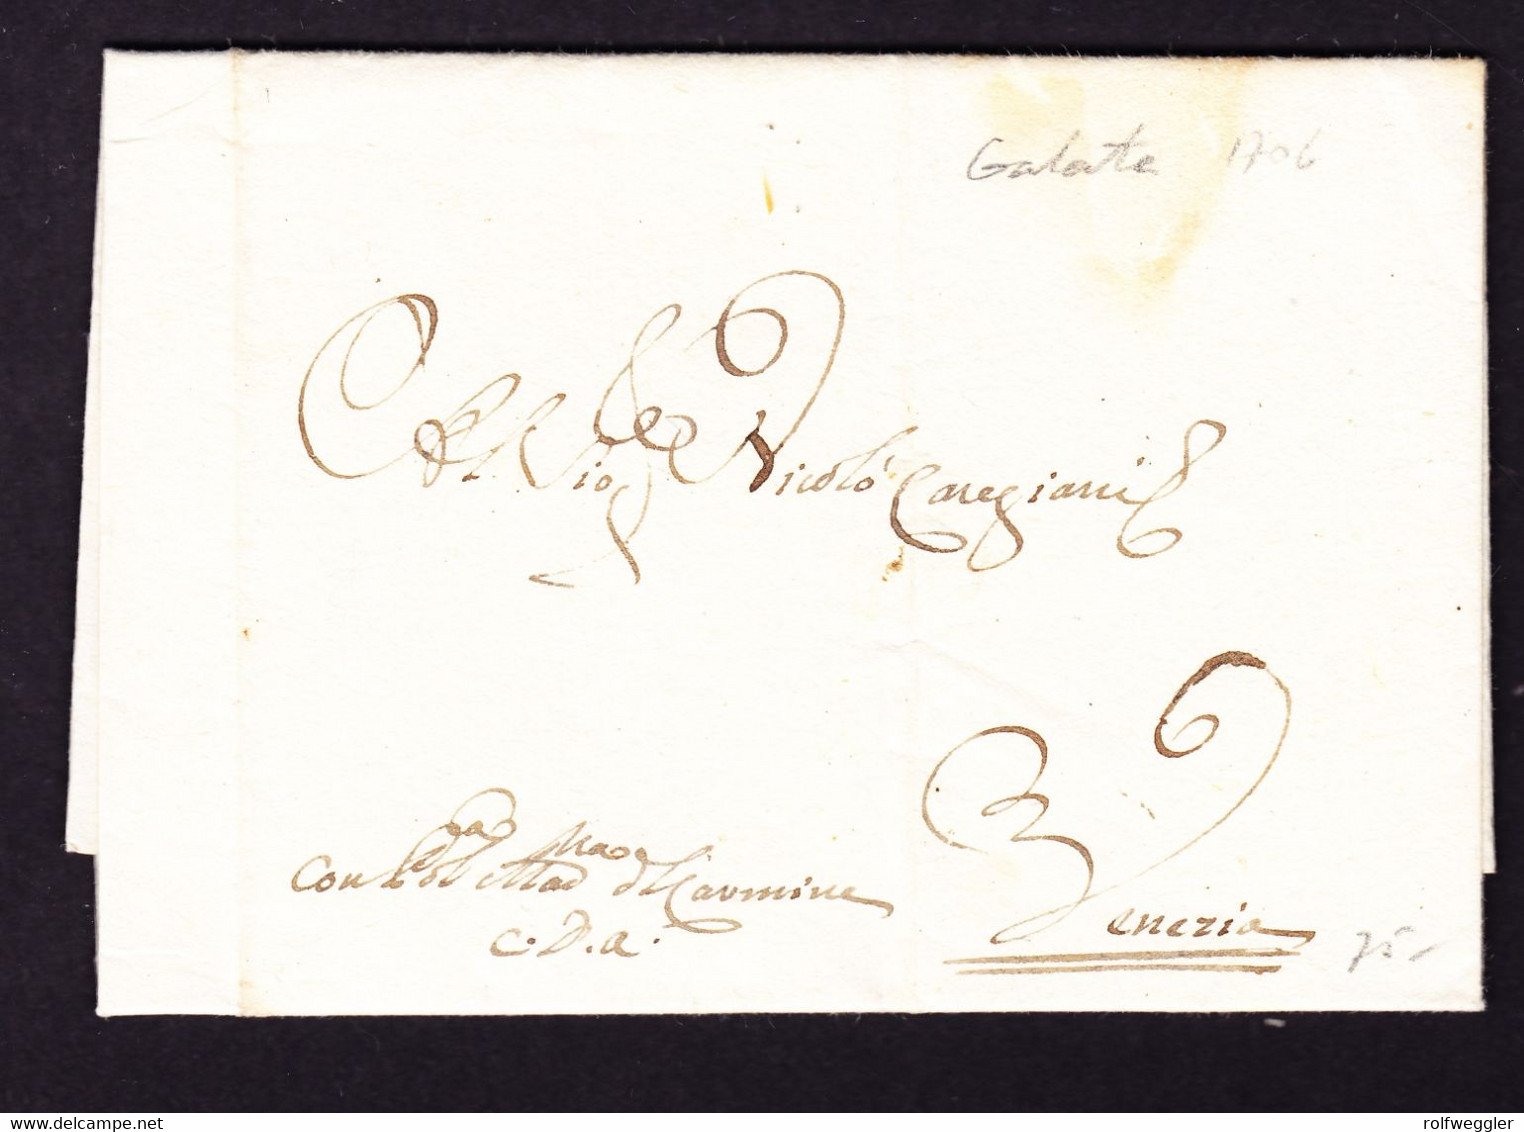 Galata 1706
Al Sig Nicolò Caregiani
Venezia
Con Mad del Carmine
C.D.a.
75-
www.delcampe.net
rolfweggler